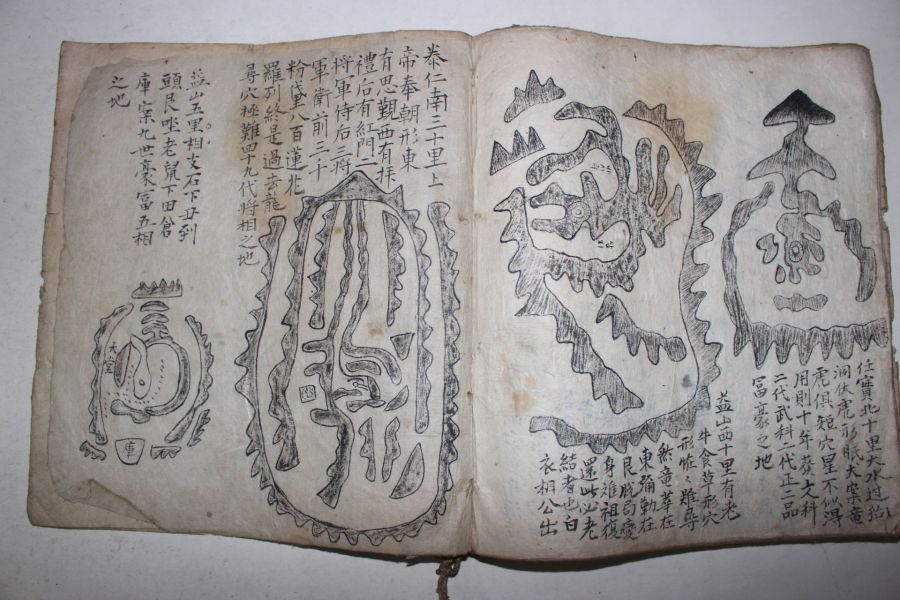 任實北十里大水討抬
洞伏虎形眠犬案竜
虎俱短穴星不似得
用則十年葬大科
二代武科二代正二品
富豪之地
益山西十里有老
牛食草形穴
形恠々難尋
然竜華在
東弥勒在
艮脱苟变
身雖祖復
還此必老
結者也白
衣相公出
泰仁南三十里上
帝奉朝形東
有思觀西有拜
禮后有紅門二
將軍侍后三將
軍衛前三十
粉黛八百蓮花
羅列終是過去龍
尋穴極難四十九代將相之地
益山五里相支石下丑到
頭艮坐老鼠下田倉
庫案九世豪富五相
之地
庫